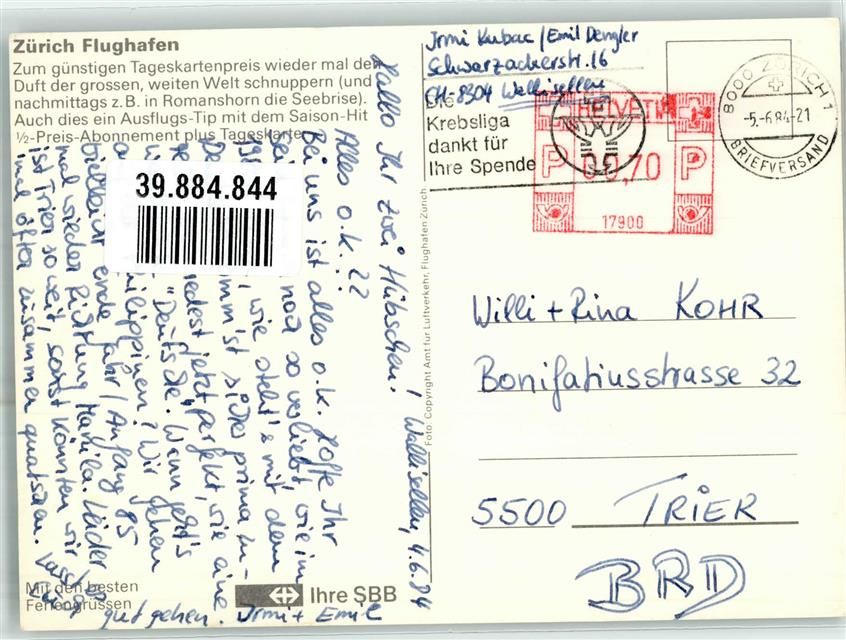 Zürich Flughafen
Zum günstigen Tageskartenpreis wieder mal den
Duft der grossen, weiten Welt schnuppern (und
nachmittags z.B. in Romanshorn die Seebrise).
Auch dies ein Ausflugs-Tip mit dem Saison-Hit
½-Preis-Abonnement plus Tageskarte
39.884.844
Wallisellen, 4.6.84
Hallo Ihr zwei Hübschen!
Alles o.k.??
Bei uns ist alles o.k. Hoffe Ihr
noch so verliebt wie im
wie steht's mit dem
prima
jetzt perfekt, wie eine
"Deutsche". Wann geht's
Philippinen? Wir gehen
vielleicht ende Jahr/Anfang 85
mal wieder Richtung Manila. Leider
ist Trier so weit, sonst könnten wir
mal öfter zusammen quatschen. Lasst es
Euch gut gehen. Irmi + Emil
Mit den besten
Feriengrüssen
Ihre SBB
Foto: Copyright Amt für Luftverkehr, Flughafen Zürich
Irmi Kubac / Emil Dengler
Schwarzackerstr. 16
CH-8304 Wallisellen
Die
Krebsliga
dankt für
Ihre Spende
HELVETIA
P 00,70 P
17900
8000 ZÜRICH 1
-5.-6.84-21
BRIEFVERSAND
Willi + Rina KOHR
Bonifatiusstrasse 32
5500 TRIER
BRD